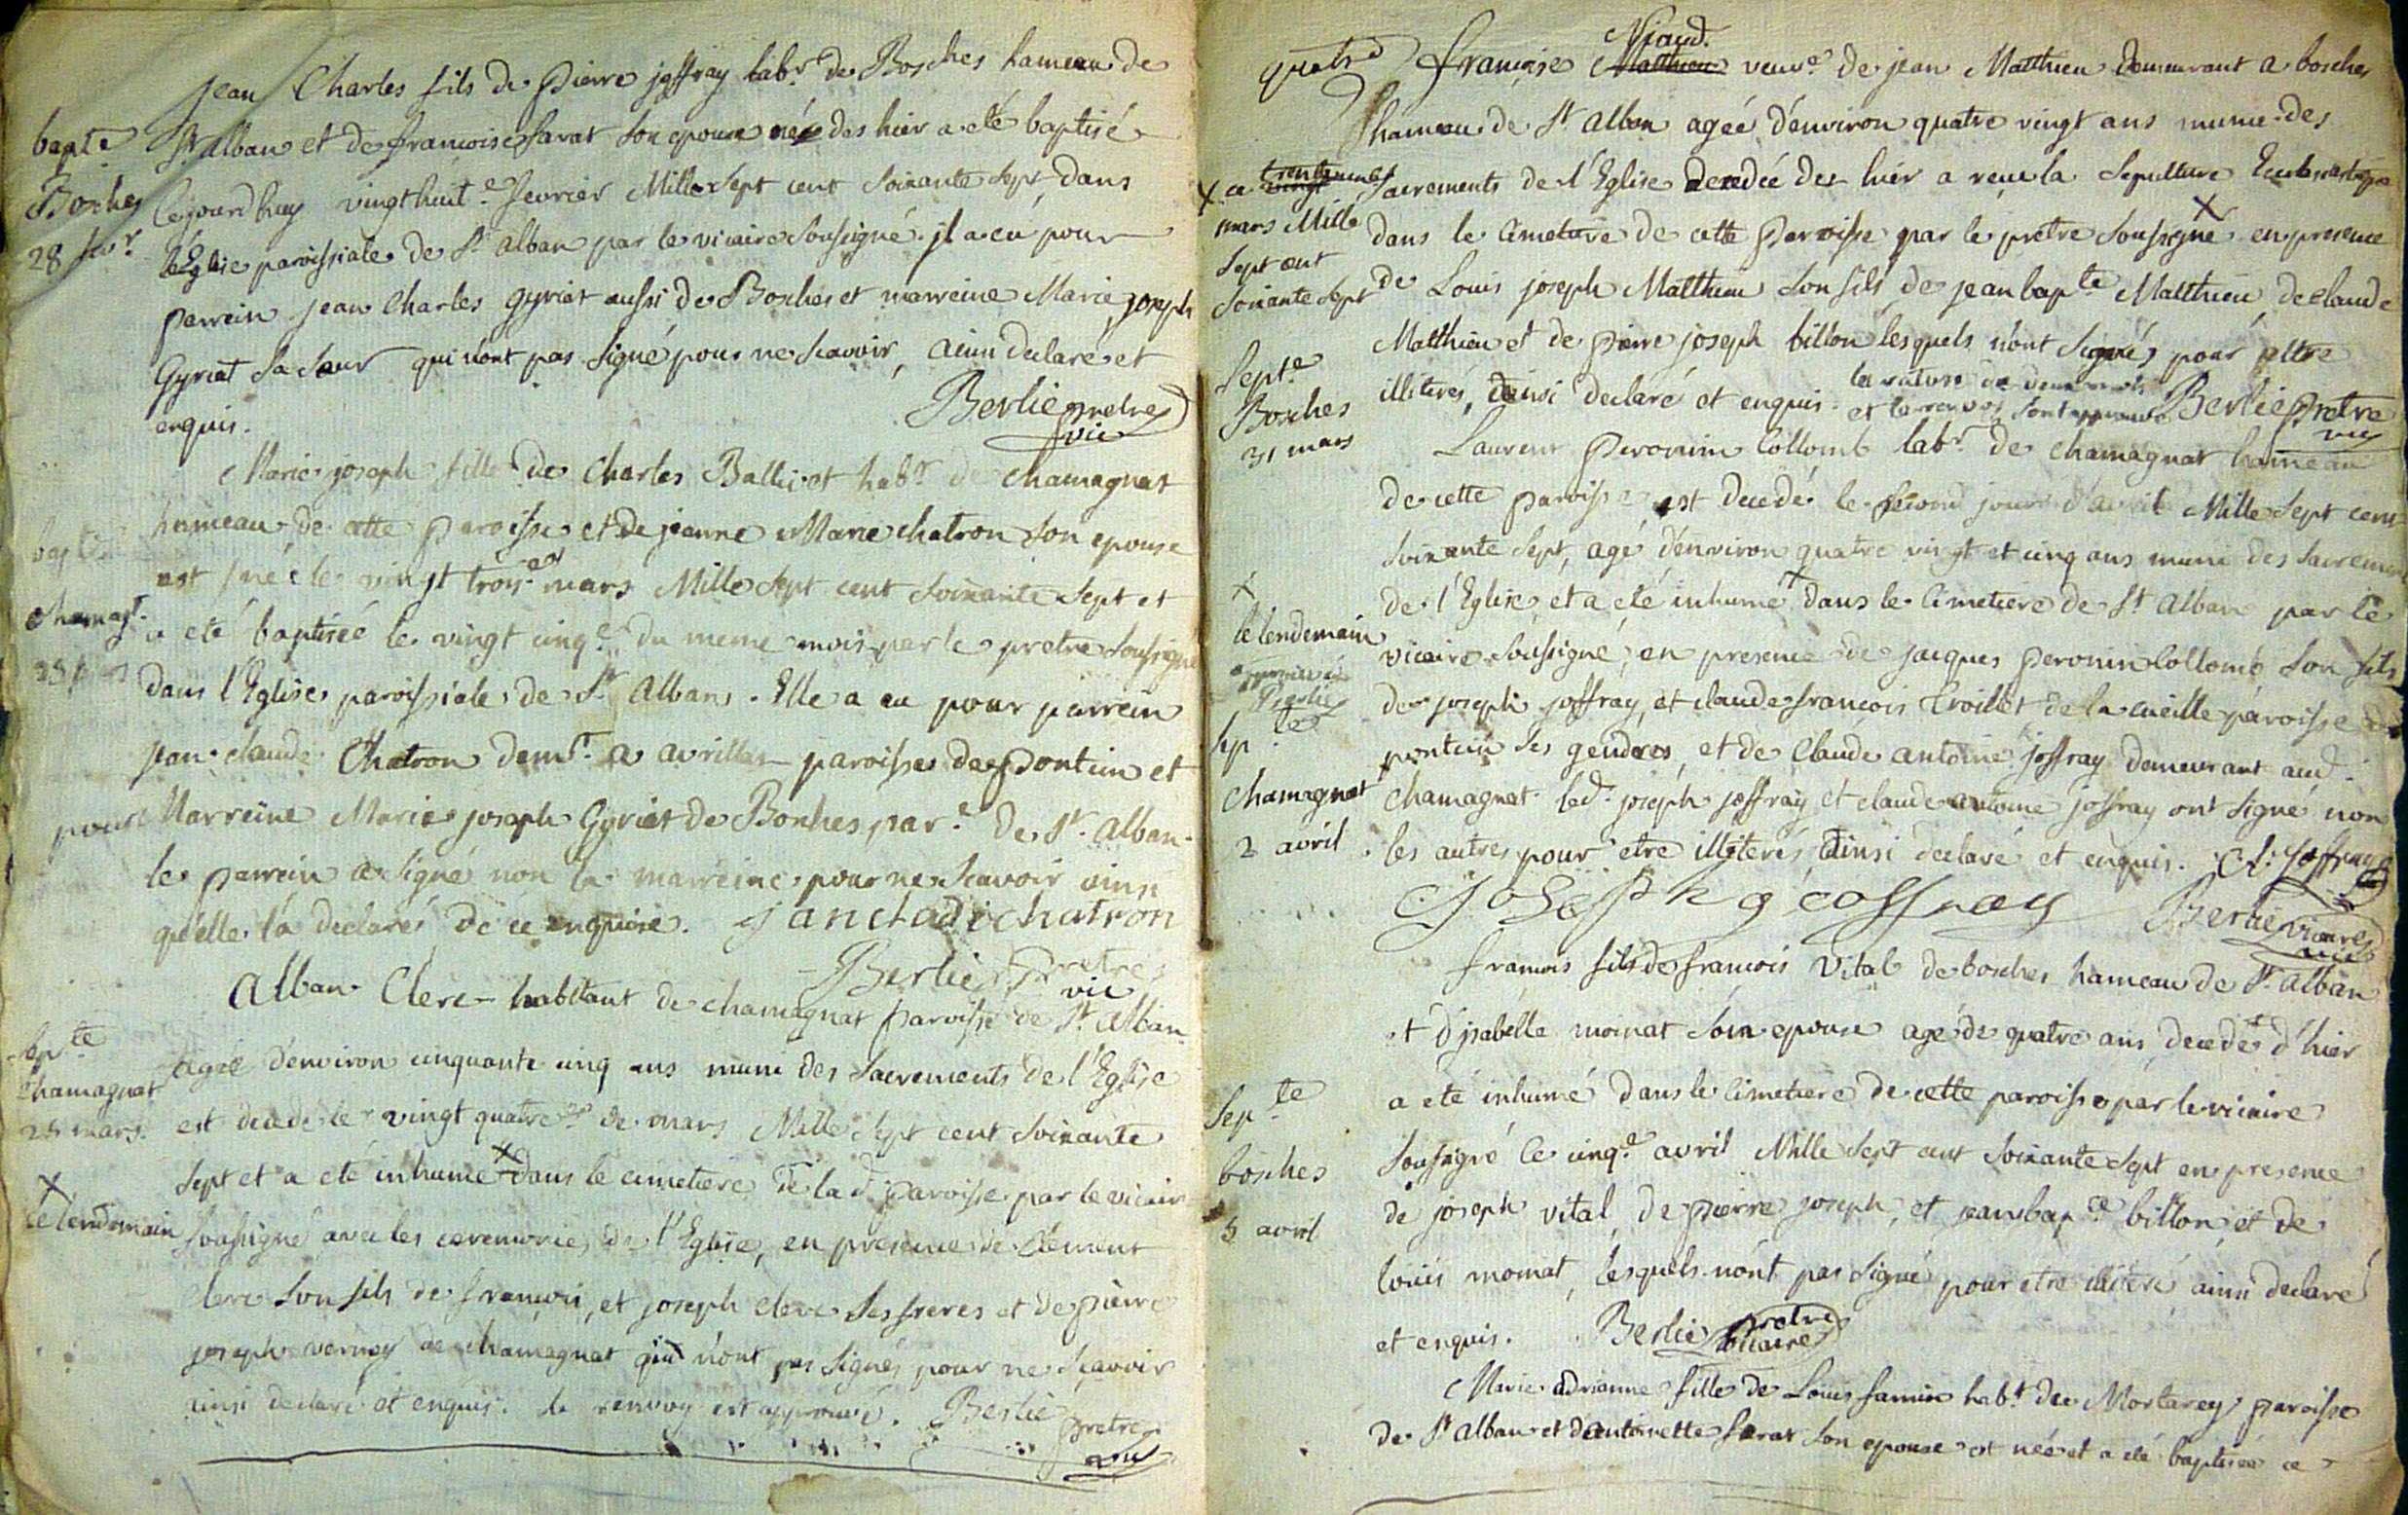 jean Charles fils de Pierre joffray labr. de Bosches hameau de
bapte. St alban et de francoise Sarat son epouse né des hier a eté baptisé
Bosches cejourdhuy vingt huite. fevrier Mille Sept cent Soixante Sept, dans
28 fevr. l'Eglise paroissiale de St alban par le vicaire Soussigné. il a eu pour
parrein jean Charles Gyriat aussi de Bosches et marreine Marie joseph
Gyriat Sa Sœur qui n'ont pas Signé pour ne Scavoir, ainsi declaré et
enquis. Berlie pretre
vic
Marie joseph fille de Charles Ballivet habt. de chamagnat
bapte. hameau de cette paroisse et de jeanne Marie chatron Son epouse
est née le vingt trois. mars Mille Sept cent Soixante Sept et
chamagt. a eté baptisée le vingt cinqe. du meme mois par le pretre Soussigné
dans l'Eglise paroissiale de St Alban. Elle a eu pour parrein
jean claude Chatron demt. a avrillat paroisse de Pontcin et
pour Marreine Marie joseph Gyriat de Bosches pare. de St. alban.
le parrein a Signé non la marreine pour ne Scavoir ainsi
qu'elle l'a declaré de ce enquise. jancladichatron
Berlie Pretre
vic
Alban Clerc habitant de chamagnat paroisse de St. alban
septe agé d'environ cinquante cinq ans muni des Sacrements de l'Eglise
chamagnat est decedé le vingt quatre de mars Mille Sept cent Soixante
25 mars. Sept et a eté inhumé x dans le cimetiere de lad. paroisse par le vicaire
x
le lendemain Soussigné avec les ceremonies de l'Eglise, en presence de Clement
clerc Son fils de francois, et joseph clerc Ses freres et de pierre
joseph vernay de chamagnat qui n'ont pas Signés pour ne Scavoir
ainsi declaré et enquis. le renvoy est approuvé. Berlie pretre
vic
quatre françoise Matthieu Niaud. veuve. de jean Matthieu demeurant a bosches
hameau de St alban ageé d'environ quatre vingt ans munie des
x ce vingt trenteunie Sacrements de l'Eglise decedée des hier a recu la Sepulture Ecclesiastique
mars Mille dans le Cimetiere de cette Paroisse par le pretre Soussigné x en presence
Sept cent
Soixante Sept de Louis joseph Matthieu Son fils de jean bapte. Matthieu, de claude
Matthieu et de Pierre joseph billon lesquels n'ont Signés pour etre
Septe. illiterés, ainsi declaré et enquis. la rature de deux mots et le renvoy sont approuvés Berlie Pretre
vic
Bosches
31 mars
Laurent Peronin Collomb labr. de chamagnat hameau
de cette paroisse est decedé le Second jour d'avril Mille Sept cent
Soixante Sept, agé d'environ quatre vingt et cinq ans muni des Sacrements
x de l'Eglise et a eté inhumé x dans le Cimetiere de St Alban par le
le lendemain vicaire Soussigné, en presence de jacques peronin Collomb Son fils
approuvé
Berlie de joseph joffray, et claude francois Troillet de la cueille paroisse de
septe. pontcin Ses gendres, et de Claude antoine joffray demeurant aud.
chamagnat chamagnat. led. joseph joffray et claude antoine joffray ont Signé non
2 avril les autres pour etre illiterés, ainsi declaré et enquis. Cl: Joffray
Joseph geoffray Berlie vicaire
francois fils de francois Vital de bosches hameau de St. alban
et d'isabelle moinat Son epouse agé de quatre ans, decedé d'hier
Septe. a eté inhumé dans le cimetiere de cette paroisse par le vicaire
bosches Soussigné le cinqe. avril Mille Sept cent Soixante Sept en presence
5 avril de joseph vital, de pierre joseph, et jean bapte. billon, et de
louis moinat, lesquels n'ont pas Signé pour etre illiteré, ainsi declaré
et enquis. Berlie pretre
vicaire
Marie adrianne fille de Louis Famin habt. de Mortarey paroisse
de St alban et d'antoinette Sarat Son epouse est née et a eté baptisée ce